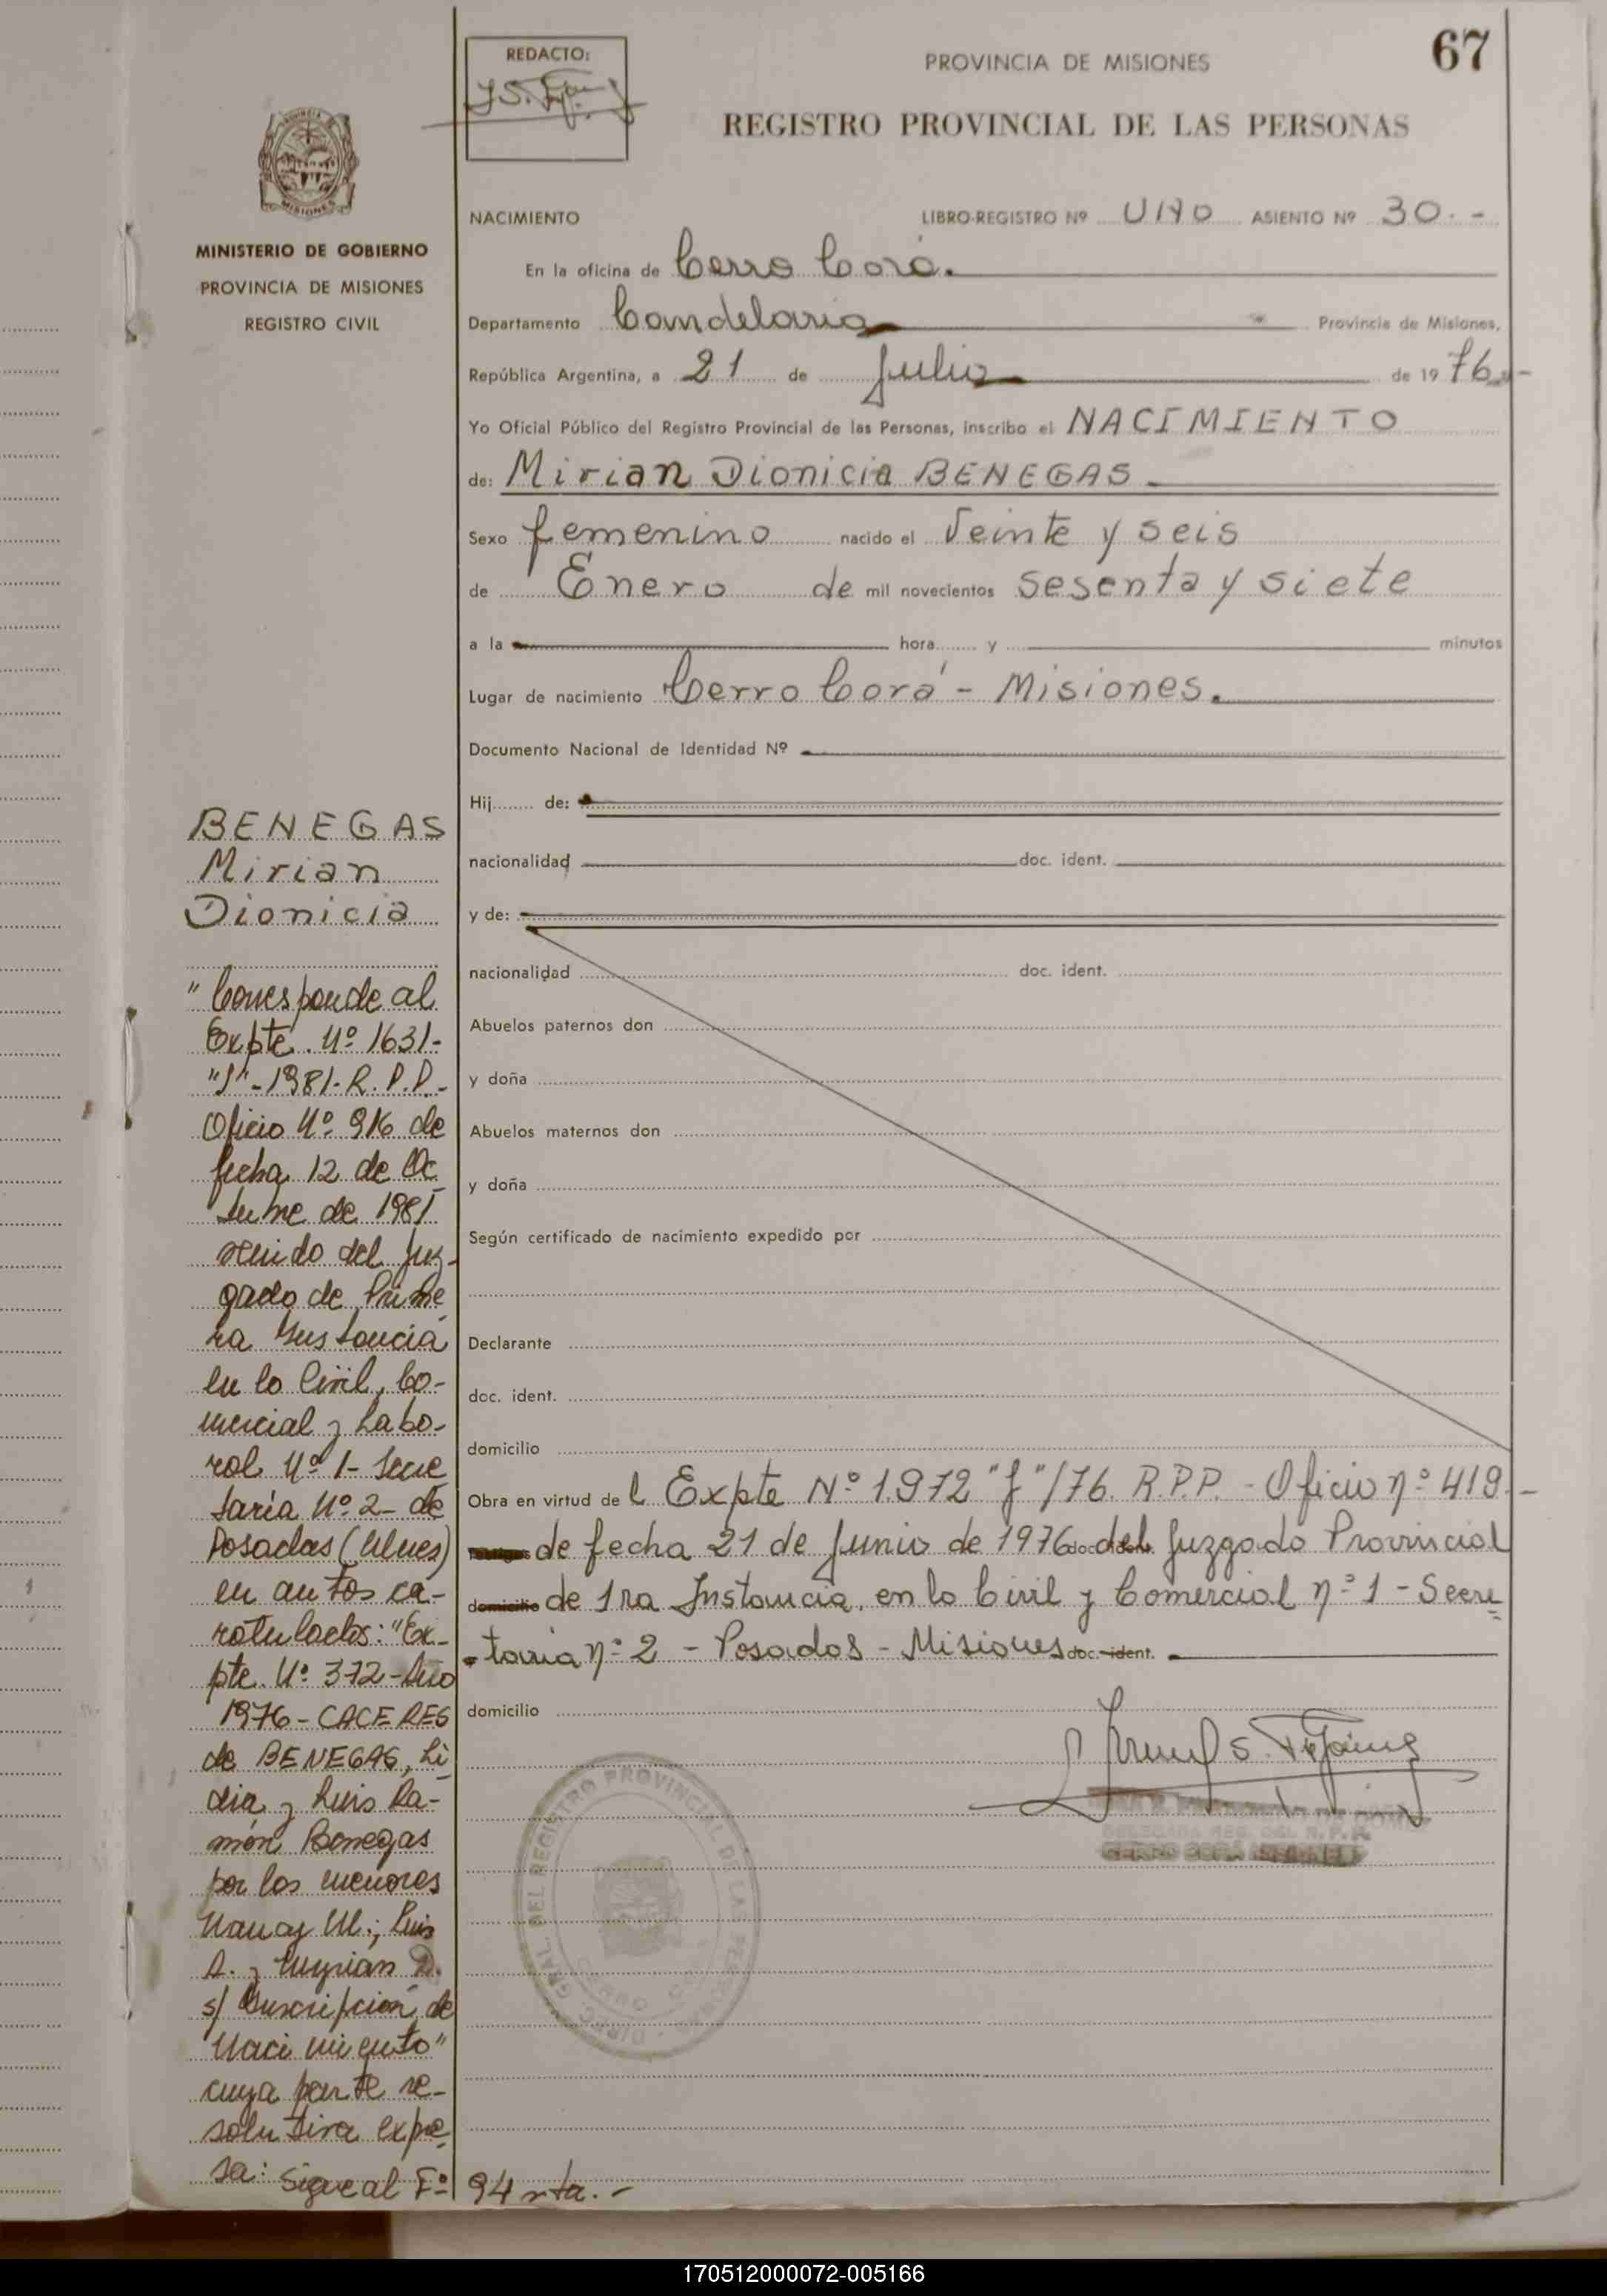 REDACTO:
PROVINCIA DE MISIONES
67
REGISTRO PROVINCIAL DE LAS PERSONAS
MISIONES
MINISTERIO DE GOBIERNO
PROVINCIA DE MISIONES
REGISTRO CIVIL
NACIMIENTO LIBRO-REGISTRO Nº UNO ASIENTO Nº 30.-
En la oficina de Cerro Corá.
Departamento Candelaria Provincia de Misiones,
República Argentina, a 21 de Julio de 19 76.-
Yo Oficial Público del Registro Provincial de las Personas, inscribo el NACIMIENTO
de: Mirian Dionicia BENEGAS
Sexo femenino nacido el Veinte y seis
de Enero de mil novecientos sesenta y siete
a la hora y minutos
Lugar de nacimiento Cerro Corá - Misiones.
Documento Nacional de Identidad Nº
Hij de:
nacionalidad doc. ident.
y de:
nacionalidad doc. ident.
Abuelos paternos don
y doña
Abuelos maternos don
y doña
Según certificado de nacimiento expedido por
Declarante
doc. ident.
domicilio
Obra en virtud de l Expte Nº 1.972 "J"/76. R.P.P. - Oficio nº 419.-
de fecha 21 de Junio de 1976 del Juzgado Provincial
domicilio de 1ra Instancia, en lo Civil y Comercial nº 1 - Secre
taria nº 2 - Posadas - Misiones doc. ident.
domicilio
BENEGAS
Mirian
Dionicia
"Corresponde al
Expte. Nº 1631-
"J"-1981-R.P.P.-
Oficio Nº 916 de
fecha 12 de Oc
tubre de 1981
venido del Juz-
gado de Prime
ra Instancia
en lo Civil, Co-
mercial y Labo-
ral Nº 1- Secre
taría Nº 2- de
Posadas (Mnes)
en autos ca-
ratulados: "Ex-
pte. Nº 372-Año
1976-CACERES
de BENEGAS, Li
dia y Luis Ra-
món Benegas
por los menores
Nancy M.; Luis
A. y Myrian D.
s/ Inscripción de
Nacimiento"
cuya parte re-
solutiva expre
sa: Sigue al Fº 94 vta.-
DIREC. GRAL. DEL REGISTRO PROVINCIAL DE LAS PERSONAS
170512000072-005166